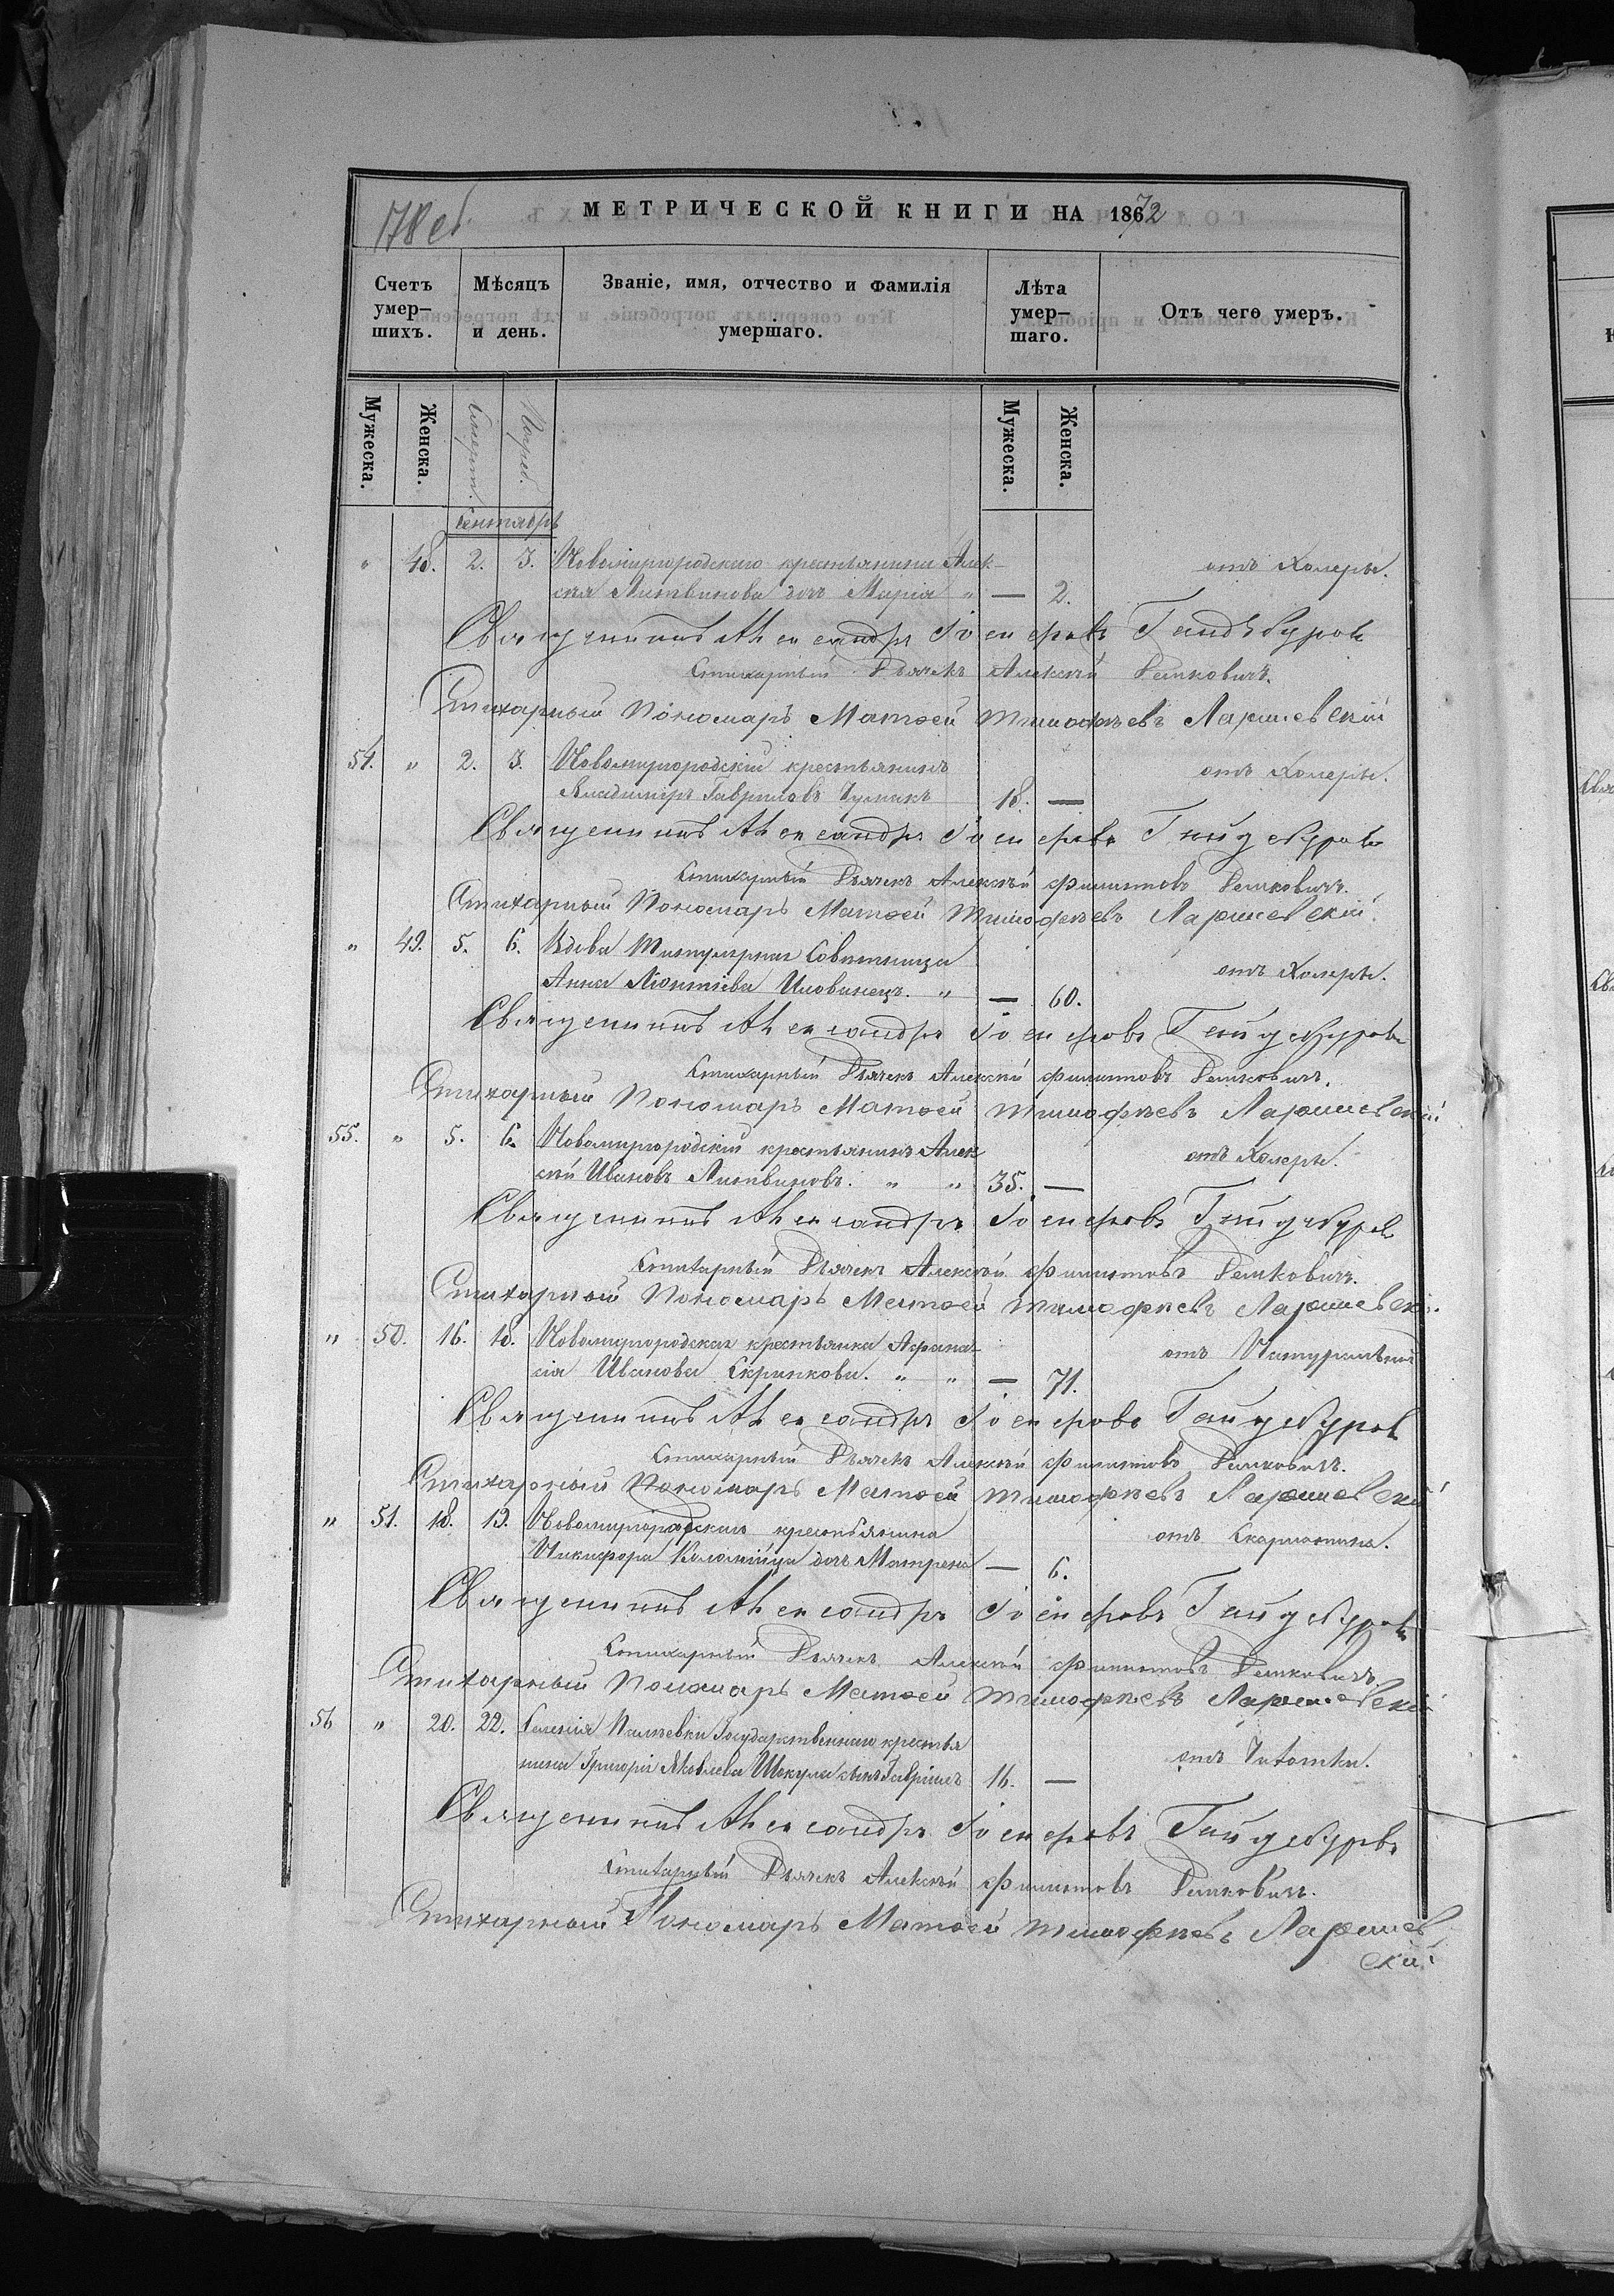 178 об.
МЕТРИЧЕСКОЙ КНИГИ НА 1872
Счетъ умер-шихъ. Мѣсяцъ и день. Званіе, имя, отчество и фамилія умершаго. Лѣта умер-шаго. Отъ чего умеръ.
Мужеска. Женска. Смерт. Погреб. Мужеска. Женска.
Сентябрь
" 48. 2. 3. Новомиргородскаго крестьянина Алек- отъ Холеры.
сѣя Литвинова дочь Марія " — 2.
Священникъ Александръ Іосифовъ Гайдебуровъ
Стихарный Дьячекъ Алексѣй Демковичъ.
Стихарный Пономарь Матѳей Тимофѣевъ Ляршевскій
54. " 2. 3. Новомиргородскій крестьянинъ отъ Холеры.
Владиміръ Гавриловъ Чумакъ 18. —
Священникъ Александръ Іосифовъ Гайдебуровъ
Стихарный Дьячекъ Алексѣй Филиповъ Демковичъ.
Стихарный Пономарь Матѳей Тимофѣевъ Ляршевскій.
" 49. 5. 6. Вдова Титулярная Совѣтница отъ Холеры.
Анна Леонтіева " — 60.
Священникъ Александръ Іосифовъ Гайдебуровъ
Стихарный Дьячекъ Алексѣй Филиповъ Демковичъ.
Стихарный Пономарь Матѳей Тимофѣевъ Ляршевскій
55. " 5. 6. Новомиргородскій крестьянинъ Алек отъ Холеры.
сѣй Ивановъ Литвиновъ. " " 35. —
Священникъ Александръ Іосифовъ Гайдебуровъ
Стихарный Дьячекъ Алексѣй Филиповъ Демковичъ.
Стихарный Пономарь Матѳей Тимофѣевъ Ляршевскій.
" 50. 16. 18. Новомиргородская крестьянка Афана- отъ Натуральной
сія Иванова Скрипкова. " " — 71.
Священникъ Александръ Іосифовъ Гайдебуровъ
Стихарный Дьячекъ Алексѣй Филиповъ Демковичъ.
Стихарный Пономарь Матѳей Тимофѣевъ Ляршевскій
" 51. 18. 19. Новомиргородскаго крестьянина отъ Скарлатина.
Никифора Коломійца дочь Матрена — 6.
Священникъ Александръ Іосифовъ Гайдебуровъ
Стихарный Дьячекъ Алексѣй Филиповъ Демковичъ.
Стихарный Пономарь Матѳей Тимофѣевъ Ляршевскій
56 " 20. 22. Селенія Панчевки Государственнаго крестья отъ Чихотки.
нина Григорія Яковлева Шокула сынъ Гавріилъ 16. —
Священникъ Александръ Іосифовъ Гайдебуровъ
Стихарный Дьячекъ Алексѣй Филиповъ Демковичъ.
Стихарный Пономарь Матѳей Тимофѣевъ Ляршев
скій